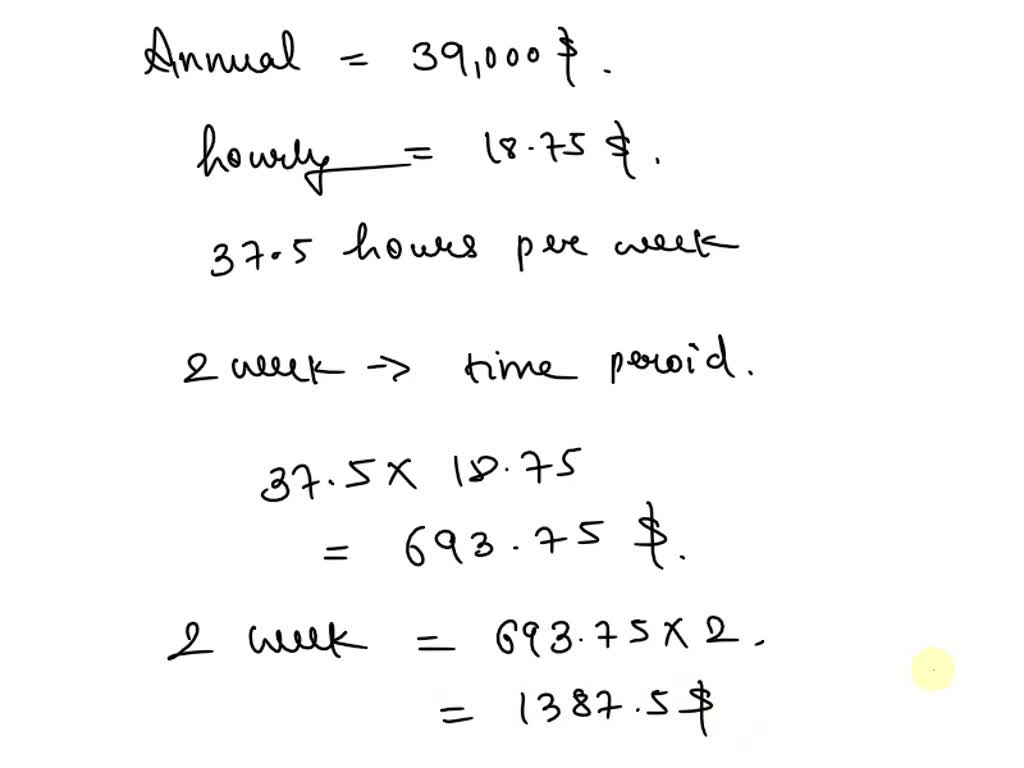 Annual = 39,000 $.
hourly = 18.75 $.
37.5 hours per week
2 week -> time peroid.
37.5 x 18.75
= 693.75 $.
2 week = 693.75 x 2.
= 1387.5 $